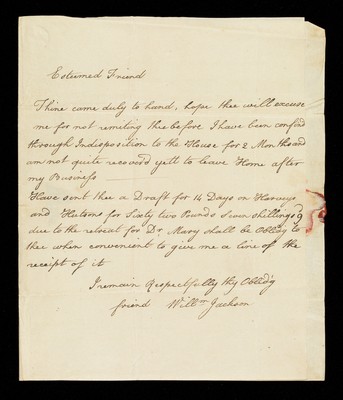 Esteemed Friend
Thine came duly to hand, hope thee will excuse
me for not remiting thee before I have been confind
through Indisposition to the House for 2 Months and
am not quite recoverd yett to leave Home after
my Business
Have sent thee a Draft for 14 Days on Harveys
and Hutsons for Sixty two Pounds Seven Shillings 9
due to the retreat for Dr. Mary shall be Oblig to
thee when convenient to give me a line of the
receipt of it
I remain Respectfully thy Oblidg
friend Willm Jackson